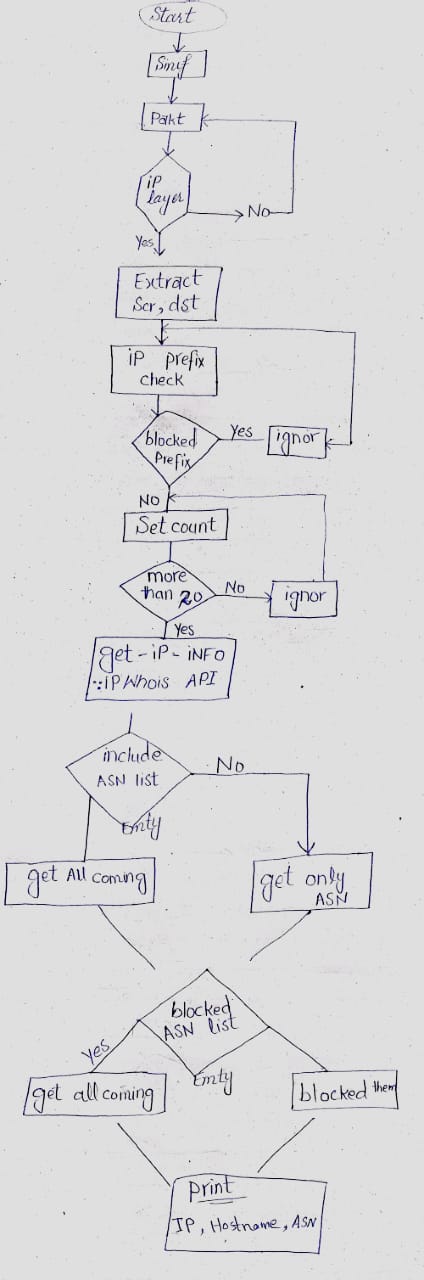 Start
Snif
Pakt
iP
layer
No
Yes
Extract
Scr, dst
iP prefix
check
blocked
Prefix
Yes
ignor
NO
Set count
more
than 20
No
ignor
Yes
get-iP-iNFO
iPWhois API
include
ASN list
No
Emty
get All coming
get only
ASN
blocked
ASN list
yes
Emty
get all coming
blocked them
Print
IP, Hostname, ASN